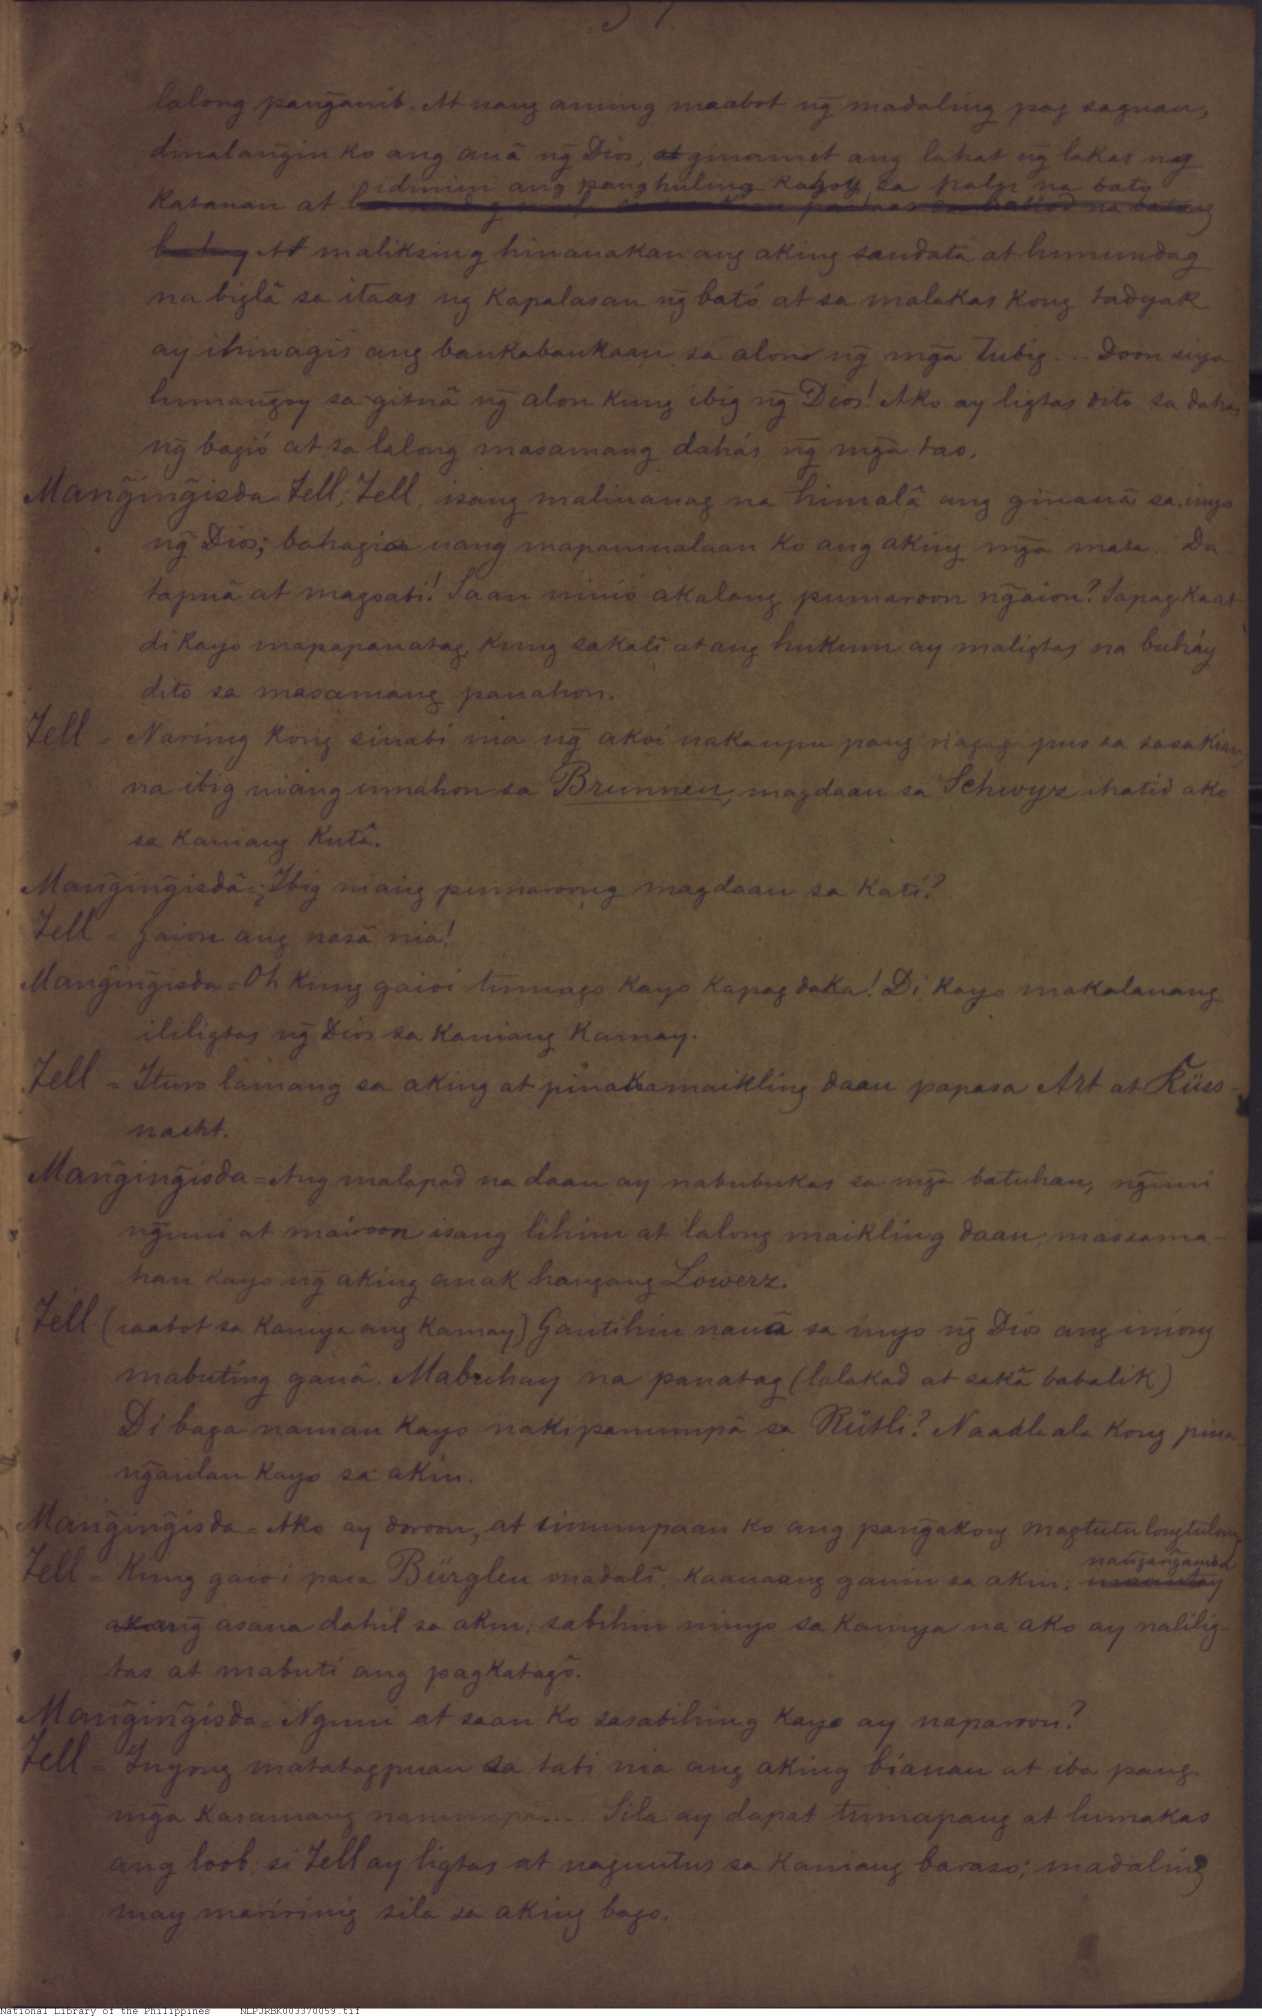 57.
lalong pang̃anib. At nang aming maabot ng̃ madaling pag saguan,
dinalang̃in ko ang auâ ng̃ Dios, at ginamit ang lahat ng̃ lakas ng
idiniin ang panghuling kahoy sa palp na bato
katauan at
At maliksing hinauakan ang aking sandata at lumundag
na biglâ sa itaas ng kapalasan ng̃ bató at sa malakas kong tadyak
ay ihinagis ang bankabankaan sa alon ng̃ mg̃a tubig... Doon siya
lumang̃oy sa gitnâ ng̃ alon kung ibig ng̃ Dios! Ako ay ligtas dito sa dahas
ng̃ bagió at sa lalong masamang dahás ng̃ mg̃a tao.
Mang̃ing̃isda Tell, Tell, isang malinanag na himalâ ang ginauâ sa inyo
ng̃ Dios; bahagia nang mapaniualaan ko ang aking mg̃a mata. Da
tapuâ at magsabi! Saan ninió akalang pumaroon ng̃aion? Sapagkaat
di kayo mapapanatag, kung sakali at ang hukum ay maligtas na buháy
dito sa masamang panahon.
Tell = Narinig kong sinabi nia ng̃ akoi nakaupu pang gapus sa sasakian,
na ibig niang umahon sa Brunnen, magdaan sa Schwyz ihatid ako
sa kaniang kutâ.
Mang̃ing̃isdâ = ¿Ibig niang pumaroong magdaan sa kati?
Tell = Gaion ang nasâ nia!
Mang̃ing̃isda = Oh kung gaioi tumago kayo kapagdaka! Di kayo makalauang
ililigtas ng̃ Dios sa kaniang kamay.
Tell = Ituro lamang sa aking at pinakamaikling daan papasa Art at Küss-
nacht.
Mang̃ing̃isda = Ang malapad na daan ay nabubukas sa mg̃a batuhan, ng̃uni
ng̃uni at mairoon isang lihim at lalong maikling daan, massama-
han kayo ng̃ aking anak hangang Lowerz.
Tell (iaabot sa kaniya ang kamay) Gantihin nauâ sa inyo ng̃ Dios ang iniong
mabuting gauâ. Mabuhay na panatag (lalakad at sakâ babalik)
Di baga naman kayo nakipanumpâ sa Rütli? Naadlala kong pina-
ng̃anlan kayo sa akin.
Mang̃ing̃isda = Ako ay doroon, at sinumpaan ko ang pang̃akong magtutulongtulong
Tell = Kung gaioi pasa Bürglen madalî, kaauaang gauin sa akin; nang̃ang̃amba
ang asaua dahil sa akin; sabihin ninyo sa kaniya na ako ay nalilig-
tas at mabuti ang pagkatagô.
Mang̃ing̃isda = Nguni at saan ko sasabihing kayo ay naparoon?
Tell = Inyong matatagpuan sa tabi nia ang aking bianan at iba pang
mg̃a kasamang nanumpa... Sila ay dapat tumapang at lumakas
ang loob; si Tell ay ligtas at naguutus sa kaniang baraso; madaling
may maririnig sila sa aking bago.
National Library of the Philippines NLPJRBK003370059.tif